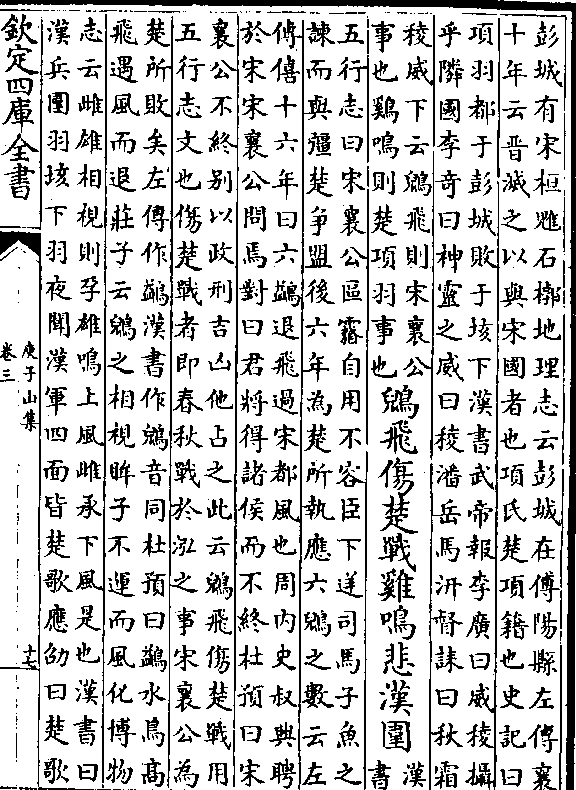 彭城有宋桓魋石槨地理志云彭城在傅陽縣左傳襄
十年云晉滅之以與宋國者也項氏楚項籍也史記曰
項羽都于彭城敗于垓下漢書武帝報李廣曰威稜攝
乎隣國李奇曰神靈之威曰稜潘岳馬汧督誄曰秋霜
稜威下云鶂飛則宋襄公
事也鷄鳴則楚項羽事也
鶂飛傷楚戰雞鳴悲漢圍
漢
書
五行志曰宋襄公區霿自用不容臣下逆司馬子魚之
諫而與彊楚爭盟後六年為楚所執應六鶂之數云左
傳僖十六年曰六鷁退飛過宋都風也周内史叔興聘
於宋宋襄公問焉對曰君將得諸侯而不終杜預曰宋
襄公不終别以政刑吉凶他占之此云鶂飛傷楚戰用
五行志文也傷楚戰者即春秋戰於泓之事宋襄公為
楚所敗矣左傳作鷁漢書作鶂音同杜預曰鷁水鳥高
飛遇風而退莊子云鶂之相視眸子不運而風化博物
志云雌雄相視則孕雄鳴上風雌承下風是也漢書曰
漢兵圍羽垓下羽夜聞漢軍四面皆楚歌應劭曰楚歌
欽定四庫全書
庾子山集
卷三
十七